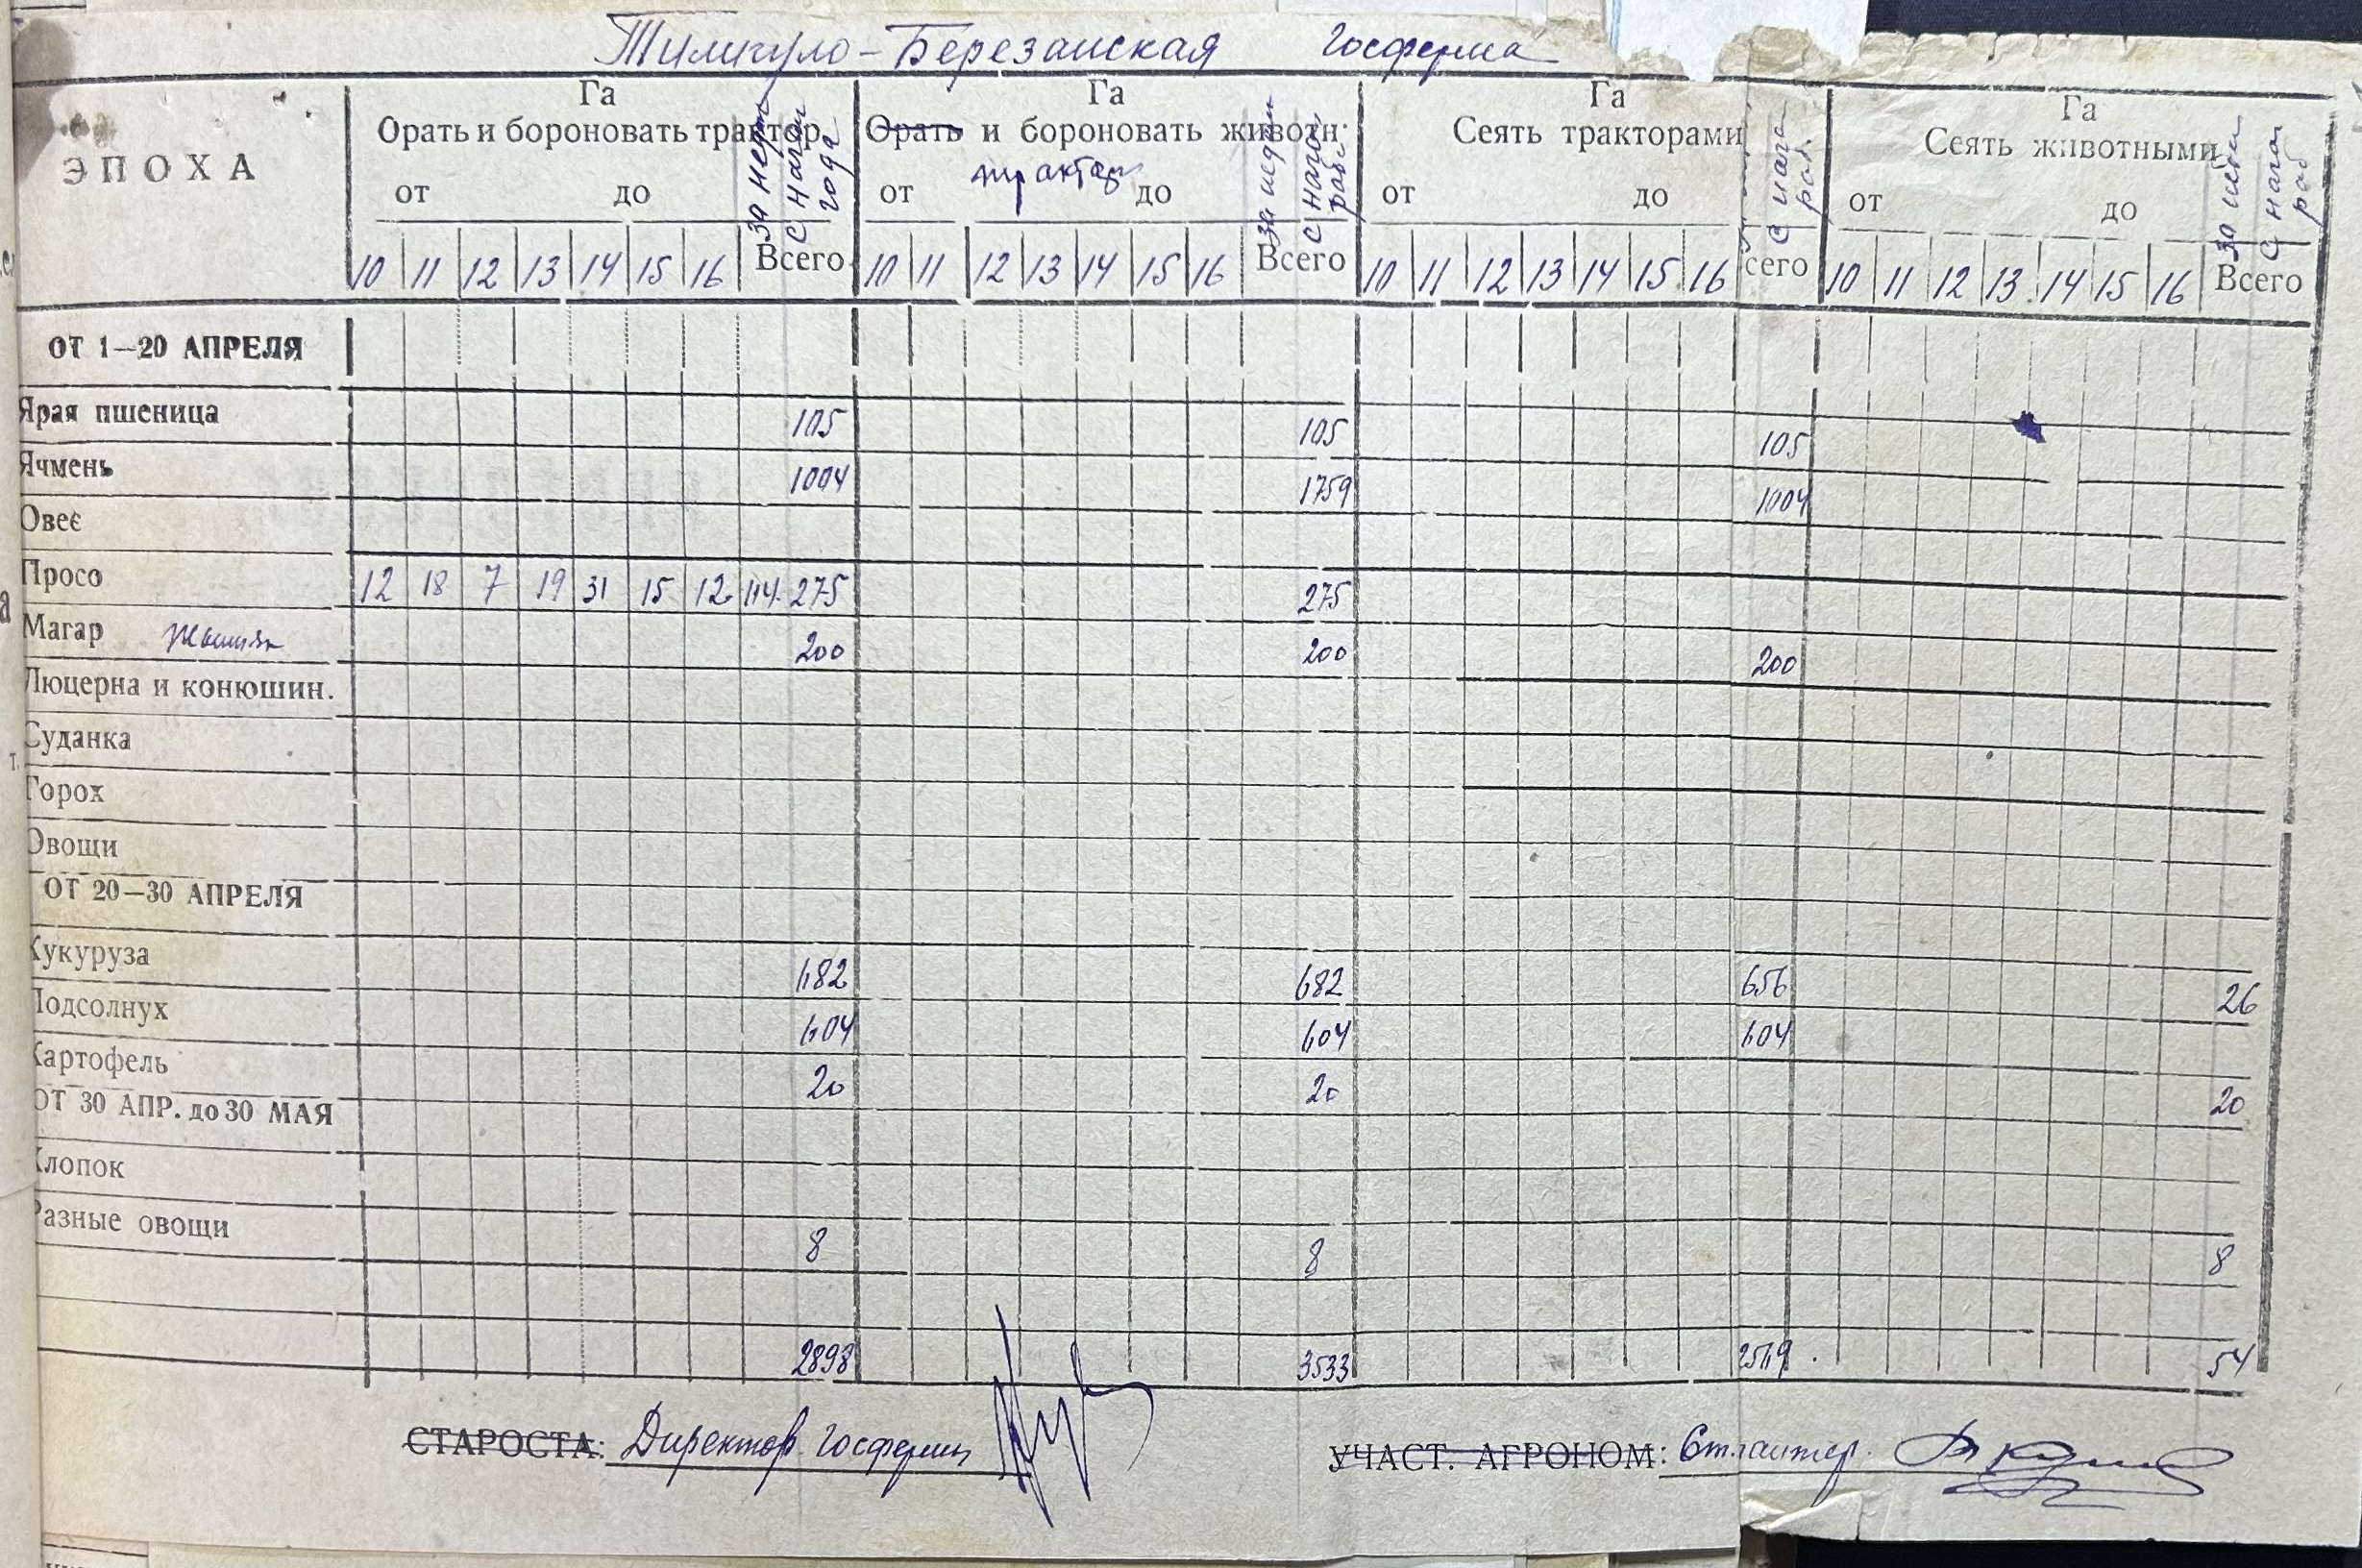 Тилигуло-Березанская Госферма
ЭПОХА
Га
Орать и бороновать трактор.
от до
за неде с начал года
10 11 12 13 14 15 16 Всего
Га
Орать и бороновать животн.
трактор
от до
за недел с начал раб
10 11 12 13 14 15 16 Всего
Га
Сеять тракторами
от до
с нача раб.
10 11 12 13 14 15 16 сего
Га
Сеять животными
от до
за неде с начал раб
10 11 12 13 14 15 16 Всего
ОТ 1—20 АПРЕЛЯ
Ярая пшеница 105 105 105
Ячмень 1004 1759 1004
Овес
Просо 12 18 7 19 31 15 12 114 275 275
Магар 200 200 200
Люцерна и конюшин.
Суданка
Горох
Овощи
ОТ 20—30 АПРЕЛЯ
Кукуруза 682 682 656 26
Подсолнух 604 604 604
Картофель 20 20 20
ОТ 30 АПР. до 30 МАЯ
Хлопок
Разные овощи 8 8 8
2898 3533 2569 54
СТАРОСТА: Директор Госфермы
УЧАСТ. АГРОНОМ: